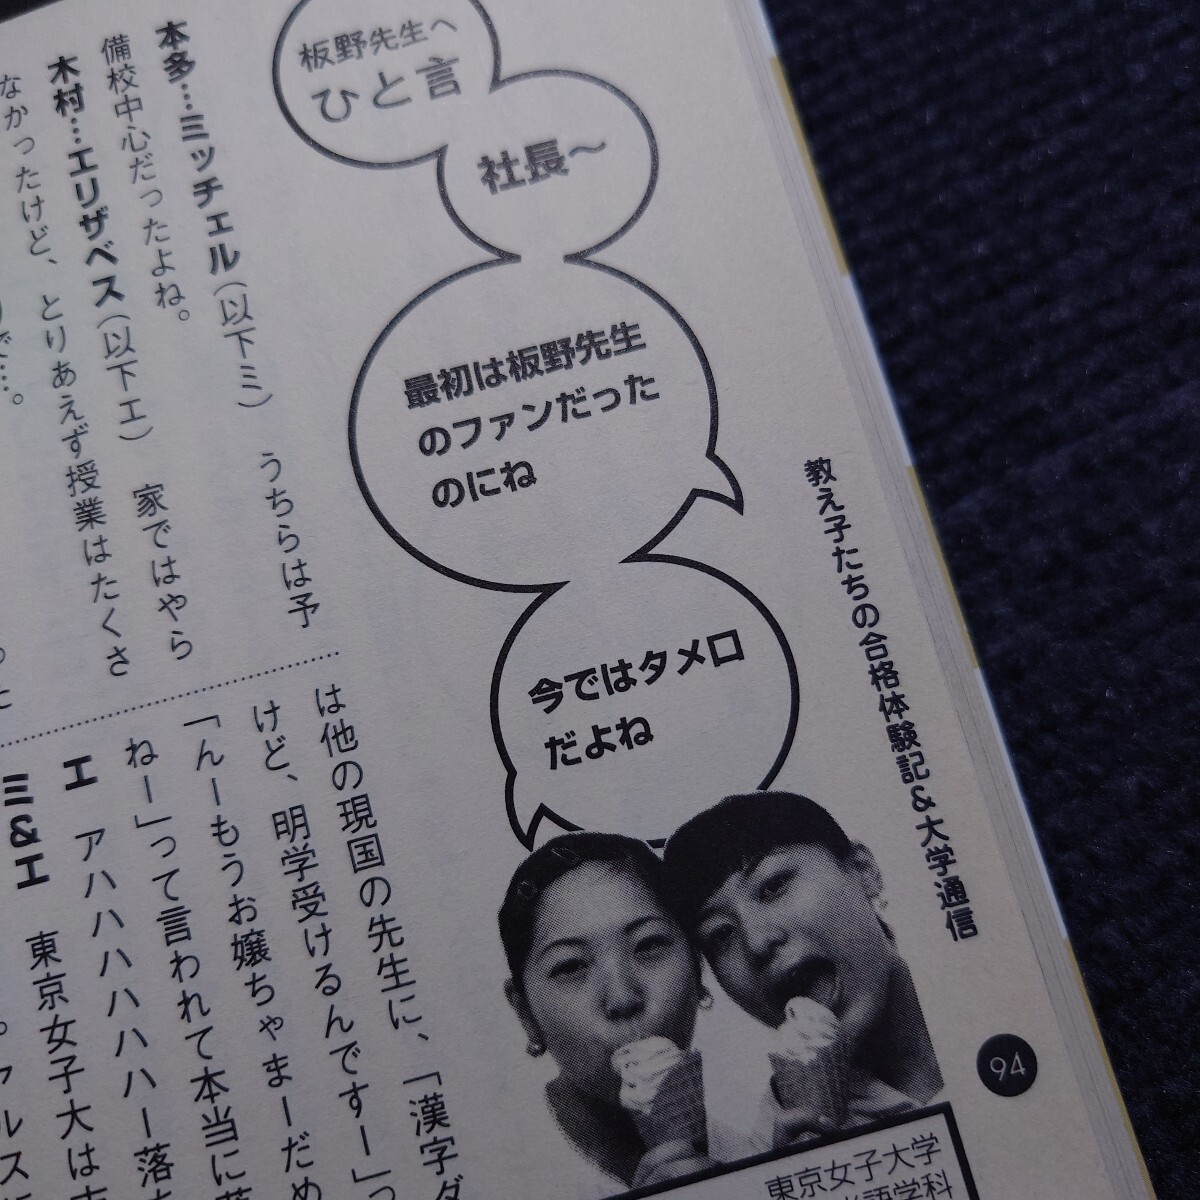 教え子たちの合格体験記&大学通信
94
板野先生へ
ひと言
社長〜
最初は板野先生
のファンだった
のにね
今ではタメ口
だよね
本多…ミッチェル(以下ミ) うちらは予
備校中心だったよね。
木村…エリザベス(以下エ) 家ではやら
なかったけど、とりあえず授業はたくさ
は他の現国の先生に、「漢字ダ
けど、明学受けるんですー」っ
「んーもうお嬢ちゃまーだめ
ねー」って言われて本当に落
エ アハハハハハハー落
ミ&エ 東京女子大は
東京女子大学
語学科